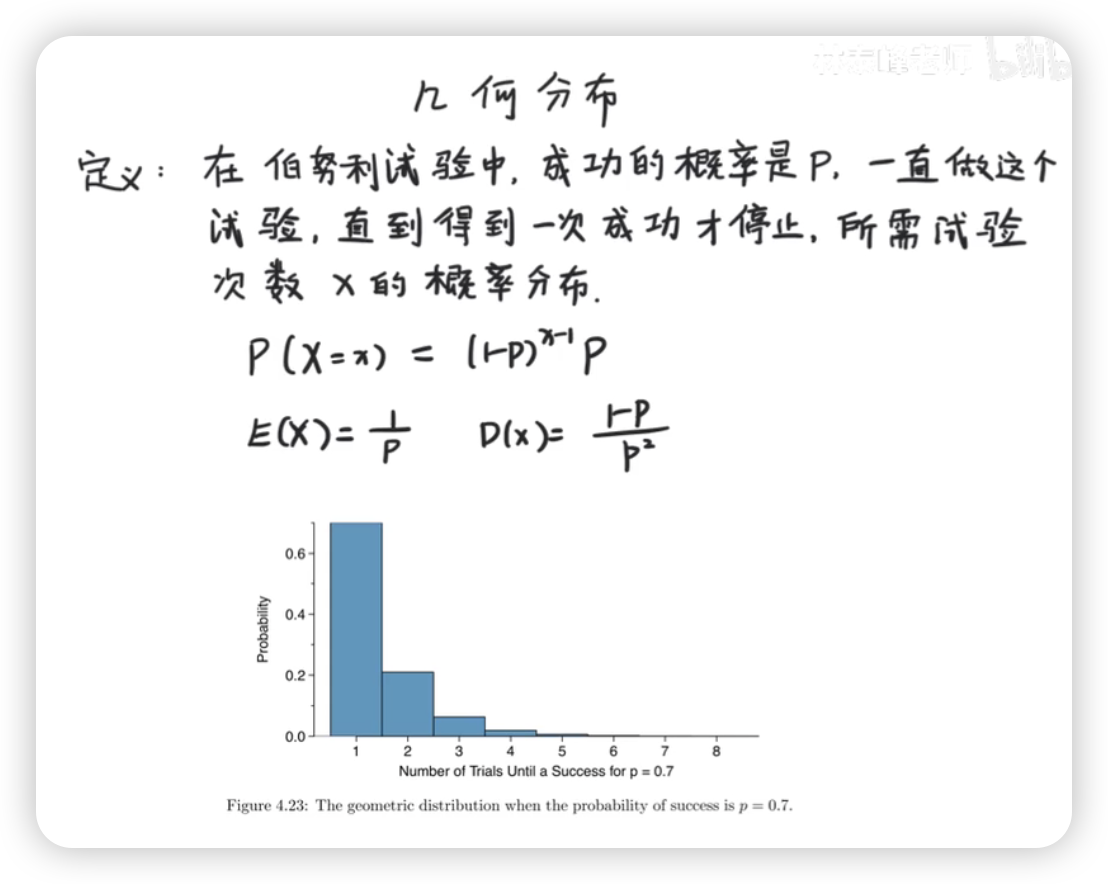 林泰峰老师 bilibili
几何分布
定义: 在伯努利试验中, 成功的概率是P, 一直做这个
试验, 直到得到一次成功才停止, 所需试验
次数 X 的概率分布.
P(X=x) = (1-P)^{x-1} P
E(X)= 1/P D(x)= 1-P/P²
0.6
0.4
0.2
0.0
Probability
1 2 3 4 5 6 7 8
Number of Trials Until a Success for p = 0.7
Figure 4.23: The geometric distribution when the probability of success is p = 0.7.